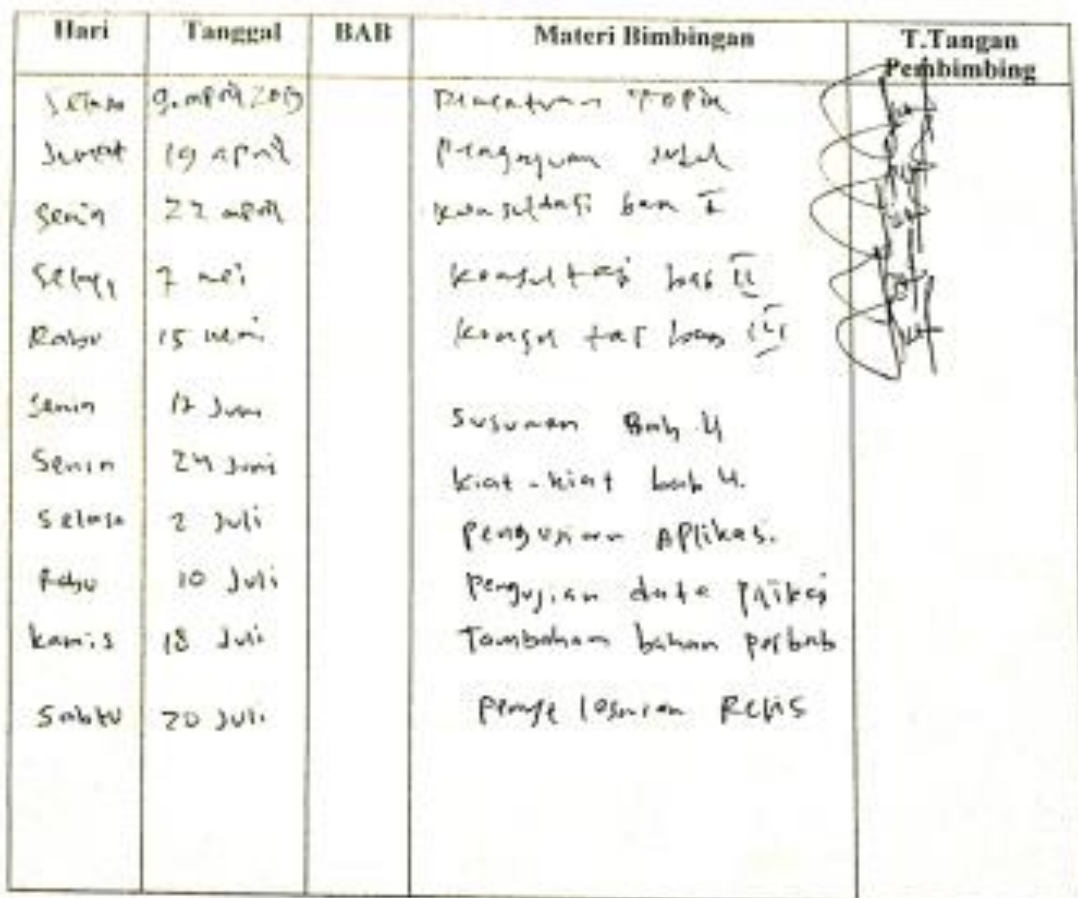 Hari Tanggal BAB Materi Bimbingan T.Tangan
Pembimbing
Selasa 9. april 2019 Topik
Jumat 19 april Pengajuan Judul
Senin 22 april konsultasi bab I
Selasa 7 mei konsultasi bab II
Rabu 15 mei konsul tas bab III
Senin 17 Juni Susunan Bab 4
Senin 24 Juni kiat-kiat bab 4.
Selasa 2 Juli Pengujian Aplikasi
Rabu 10 Juli Pengujian data
kamis 18 Juli Tambahan bahan perbab
Sabtu 20 Juli